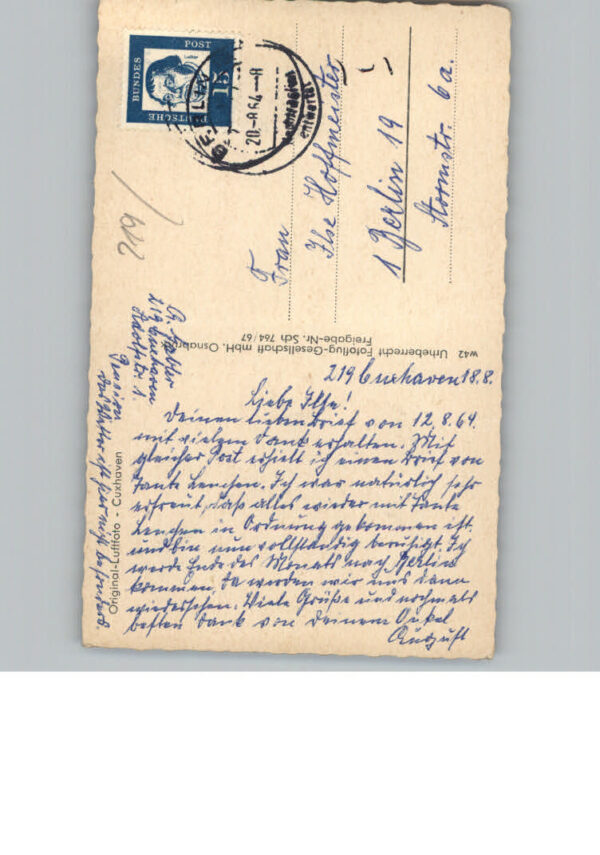 DEUTSCHE
BUNDES
POST
Luther
15
20.-8.64.-8
nachträglich
entwertet
Frau
Ilse Hoffmeister
1 Berlin 19
Stormstr. 6a.
219
W42 Urheberrecht Fotoflug-Gesellschaft mbH. Osnabrück
Freigabe-Nr. Sch 764/67
219 Cuxhaven
1
Original-Luftfoto - Cuxhaven
219 Cuxhaven 18.8.
Liebe Ilse!
Deinen lieben Brief von 12.8.64.
mit vielem Dank erhalten. Mit
gleicher Post erhielt ich einen Brief von
Tante Lenchen. Ich war natürlich sehr
erfreut, daß alles wieder mit Tante
Lenchen in Ordnung gekommen ist.
und bin nun vollständig beruhigt. Ich
werde Ende des Monats nach Berlin
kommen, da werden wir uns dann
wiedersehen. Viele Grüße und nochmals
besten Dank von Deinem Onkel
August